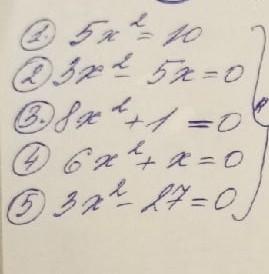 1. 5x² = 10
2 3x² - 5x = 0
3. 8x² + 1 = 0
4 6x² + x = 0
5 3x² - 27 = 0